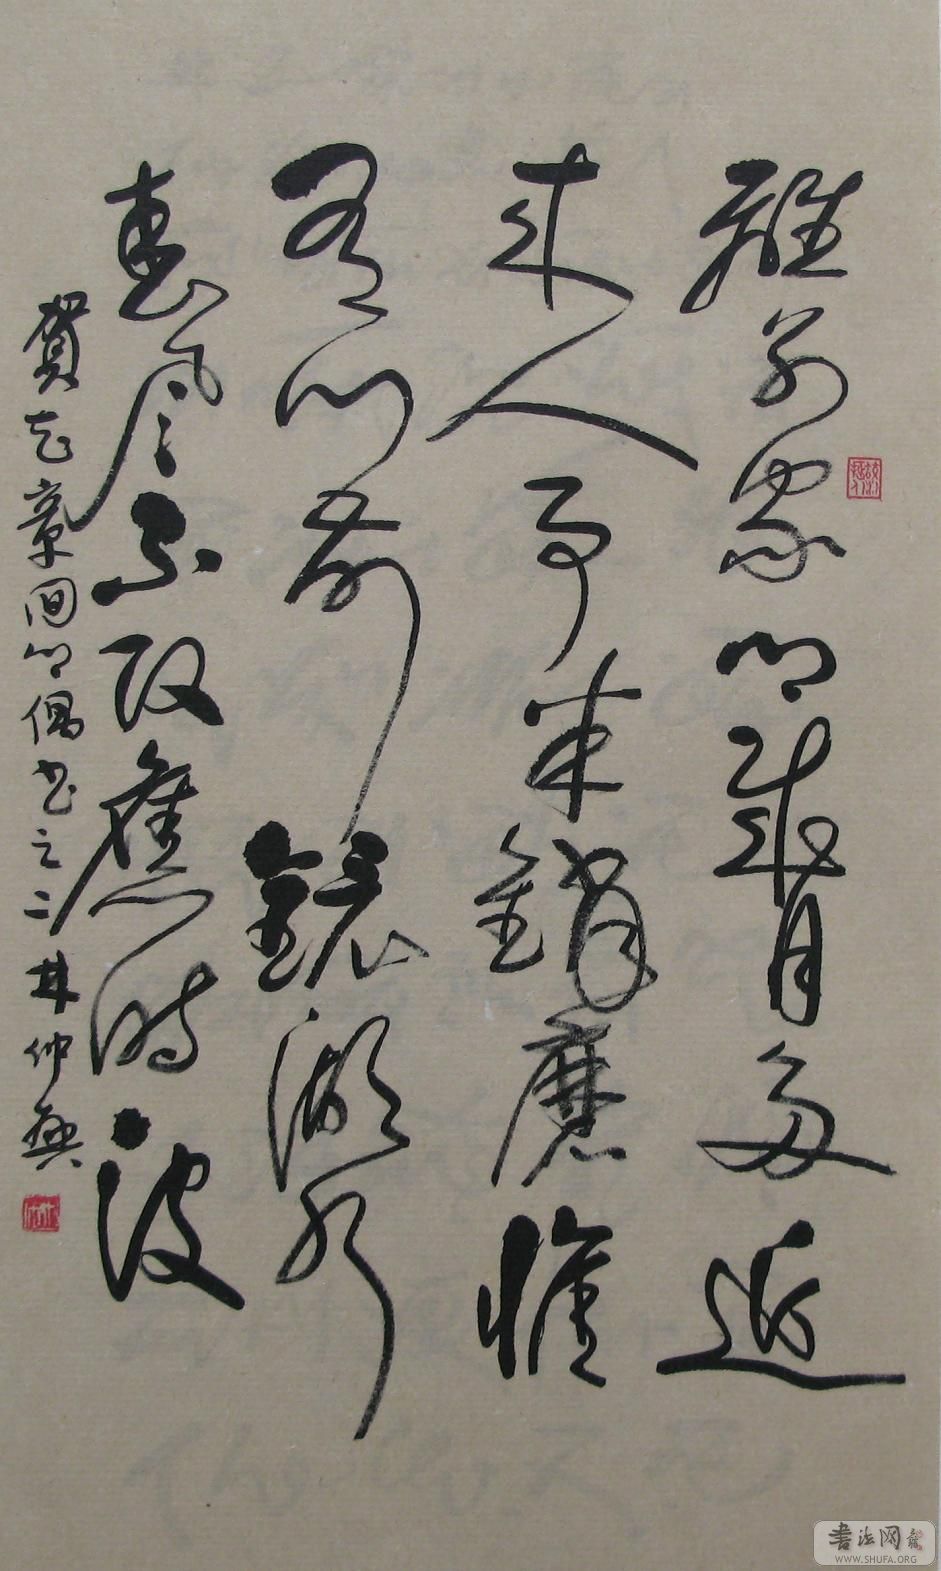 離別家鄉歲月多近
來人事半銷磨惟
有門前鏡湖水
春風不改舊時波
賀知章回鄉偶書之二 林仲興
書法网
WWW.SHUFA.ORG